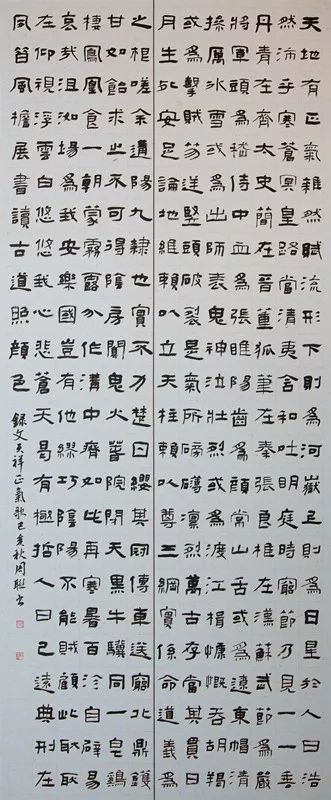 天地有正氣雜然賦流形下則為河嶽上則為日星於人曰浩
然沛乎塞蒼冥皇路當清夷含和吐明庭時窮節乃見一一垂
丹青在齊太史簡在晉董狐筆在秦張良椎在漢蘇武節為嚴
將軍頭為嵇侍中血為張睢陽齒為顏常山舌或為遼東帽清
操厲冰雪或為出師表鬼神泣壯烈或為渡江楫慷慨吞胡羯
或為擊賊笏逆豎頭破裂是氣所磅礴凜烈萬古存當其貫日
月生死安足論地維賴以立天柱賴以尊三綱實係命道義為
之根嗟余遘陽九隸也實不力楚囚纓其冠傳車送窮北鼎鑊
甘如飴求之不可得陰房闃鬼火春院閟天黑牛驥同一皂雞
棲鳳凰食一朝蒙霧露分作溝中瘠如此再寒暑百沴自辟易
哀哉沮洳場為我安樂國豈有他繆巧陰陽不能賊顧此耿耿
在仰視浮雲白悠悠我心悲蒼天曷有極哲人日已遠典刑在
夙昔風簷展書讀古道照顏色
錄文天祥正氣歌己亥秋周書